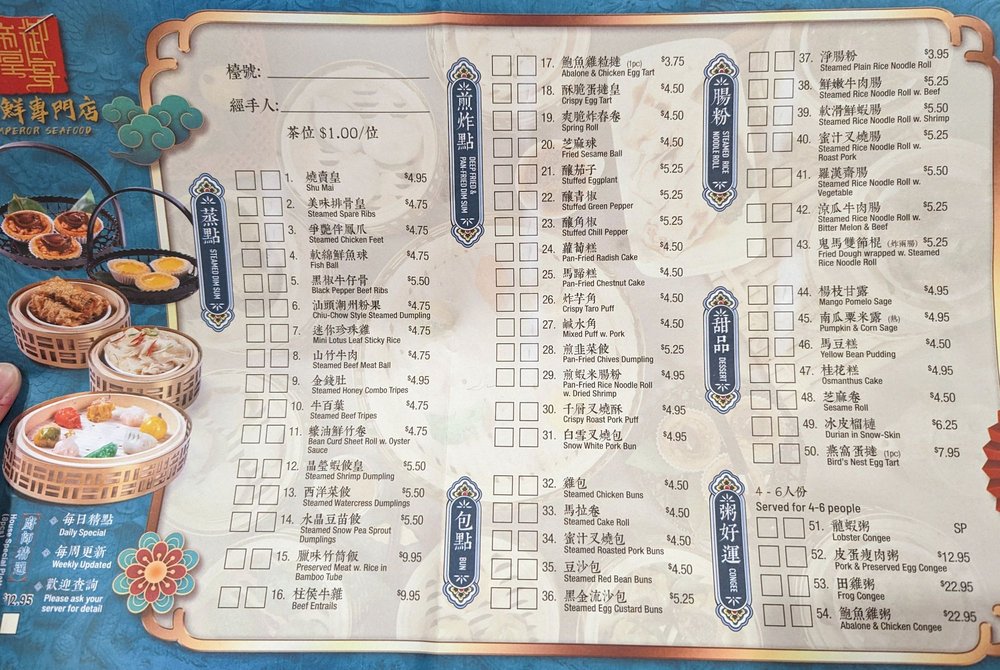 御宴
帝皇
鮮專門店
MPEROR SEAFOOD
每日精點
Daily Special
每周更新
Weekly Updated
歡迎查詢
Please ask your
server for detail
House Special Pla
$12.95
檯號:
經手人:
茶位 $1.00/位
蒸點
STEAMED DIM SUM
1. 燒賣皇 $4.95
Shu Mai
2. 美味排骨皇 $4.75
Steamed Spare Ribs
3. 爭艷伴鳳爪 $4.75
Steamed Chicken Feet
4. 軟綿鮮魚球 $4.75
Fish Ball
5. 黑椒牛仔骨 $5.50
Black Pepper Beef Ribs
6. 汕頭潮州粉果 $4.75
Chiu-Chow Style Steamed Dumpling
7. 迷你珍珠雞 $4.75
Mini Lotus Leaf Sticky Rice
8. 山竹牛肉 $4.75
Steamed Beef Meat Ball
9. 金錢肚 $4.95
Steamed Honey Combo Tripes
10. 牛百葉 $4.75
Steamed Beef Tripes
11. 蠔油鮮竹卷 $4.75
Bean Curd Sheet Roll w. Oyster
Sauce
12. 晶瑩蝦餃皇 $5.50
Steamed Shrimp Dumpling
13. 西洋菜餃 $5.50
Steamed Watercress Dumplings
14. 水晶豆苗餃 $5.50
Steamed Snow Pea Sprout
Dumplings
15. 臘味竹筒飯 $9.95
Preserved Meat w. Rice in
Bamboo Tube
16. 柱侯牛雜 $9.95
Beef Entrails
煎炸點
DEEP FRIED &
PAN-FRIED DIM SUM
17. 鮑魚雞粒撻 (1pc) $3.75
Abalone & Chicken Egg Tart
18. 酥脆蛋撻皇 $4.50
Crispy Egg Tart
19. 爽脆炸春卷 $4.50
Spring Roll
20. 芝麻球 $4.50
Fried Sesame Ball
21. 釀茄子 $5.25
Stuffed Eggplant
22. 釀青椒 $5.25
Stuffed Green Pepper
23. 釀角椒 $5.25
Stuffed Chill Pepper
24. 蘿蔔糕 $4.50
Pan-Fried Radish Cake
25. 馬蹄糕 $4.50
Pan-Fried Chestnut Cake
26. 炸芋角 $4.50
Crispy Taro Puff
27. 鹹水角 $4.50
Mixed Puff w. Pork
28. 煎韭菜餃 $5.25
Pan-Fried Chives Dumpling
29. 煎蝦米腸粉 $4.95
Pan-Fried Rice Noodle Roll
w. Dried Shrimp
30. 千層叉燒酥 $4.95
Crispy Roast Pork Puff
31. 白雪叉燒包 $4.95
Snow White Pork Bun
包點
BUN
32. 雞包 $4.50
Steamed Chicken Buns
33. 馬拉卷 $4.50
Steamed Cake Roll
34. 蜜汁叉燒包 $4.50
Steamed Roasted Pork Buns
35. 豆沙包 $4.50
Steamed Red Bean Buns
36. 黑金流沙包 $5.25
Steamed Egg Custard Buns
腸粉
STEAMED RICE
NOODLE ROLL
37. 淨腸粉 $3.95
Steamed Plain Rice Noodle Roll
38. 鮮嫩牛肉腸 $5.25
Steamed Rice Noodle Roll w. Beef
39. 軟滑鮮蝦腸 $5.50
Steamed Rice Noodle Roll w. Shrimp
40. 蜜汁叉燒腸 $5.25
Steamed Rice Noodle Roll w.
Roast Pork
41. 羅漢齋腸 $5.50
Steamed Rice Noodle Roll w.
Vegetable
42. 涼瓜牛肉腸 $5.25
Steamed Rice Noodle Roll w.
Bitter Melon & Beef
43. 鬼馬雙節棍 (炸兩腸) $5.25
Fried Dough wrapped w. Steamed
Rice Noodle Roll
甜品
DESSERT
44. 楊枝甘露 $4.95
Mango Pomelo Sage
45. 南瓜粟米露 (熱) $4.95
Pumpkin & Corn Sage
46. 馬豆糕 $4.50
Yellow Bean Pudding
47. 桂花糕 $4.95
Osmanthus Cake
48. 芝麻卷 $4.50
Sesame Roll
49. 冰皮榴槤 $6.25
Durian in Snow-Skin
50. 燕窩蛋撻 (1pc) $7.95
Bird's Nest Egg Tart
粥好運
CONGEE
4 - 6人份
Served for 4-6 people
51. 龍蝦粥 SP
Lobster Congee
52. 皮蛋瘦肉粥 $12.95
Pork & Preserved Egg Congee
53. 田雞粥 $22.95
Frog Congee
54. 鮑魚雞粥 $22.95
Abalone & Chicken Congee